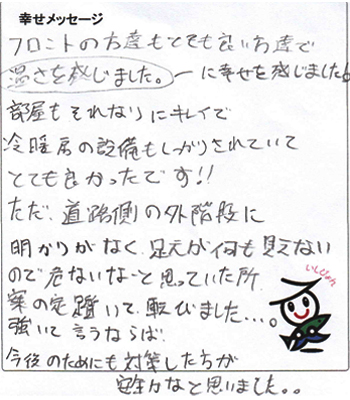 幸せメッセージ
フロントの方達もとても良い方達で
温さを感じました。ーに幸せを感じました
部屋もそれなりにキレイで
冷暖房の設備もしっかりされていて
とても良かったです!!
ただ、道路側の外階段に
明かりがなく、足元が何も見えない
ので危ないな…と思っていた所、
案の定躓いて、転びました...。
強いて言うならば、
今後のためにも対策した方が
安全かなと思いました。。